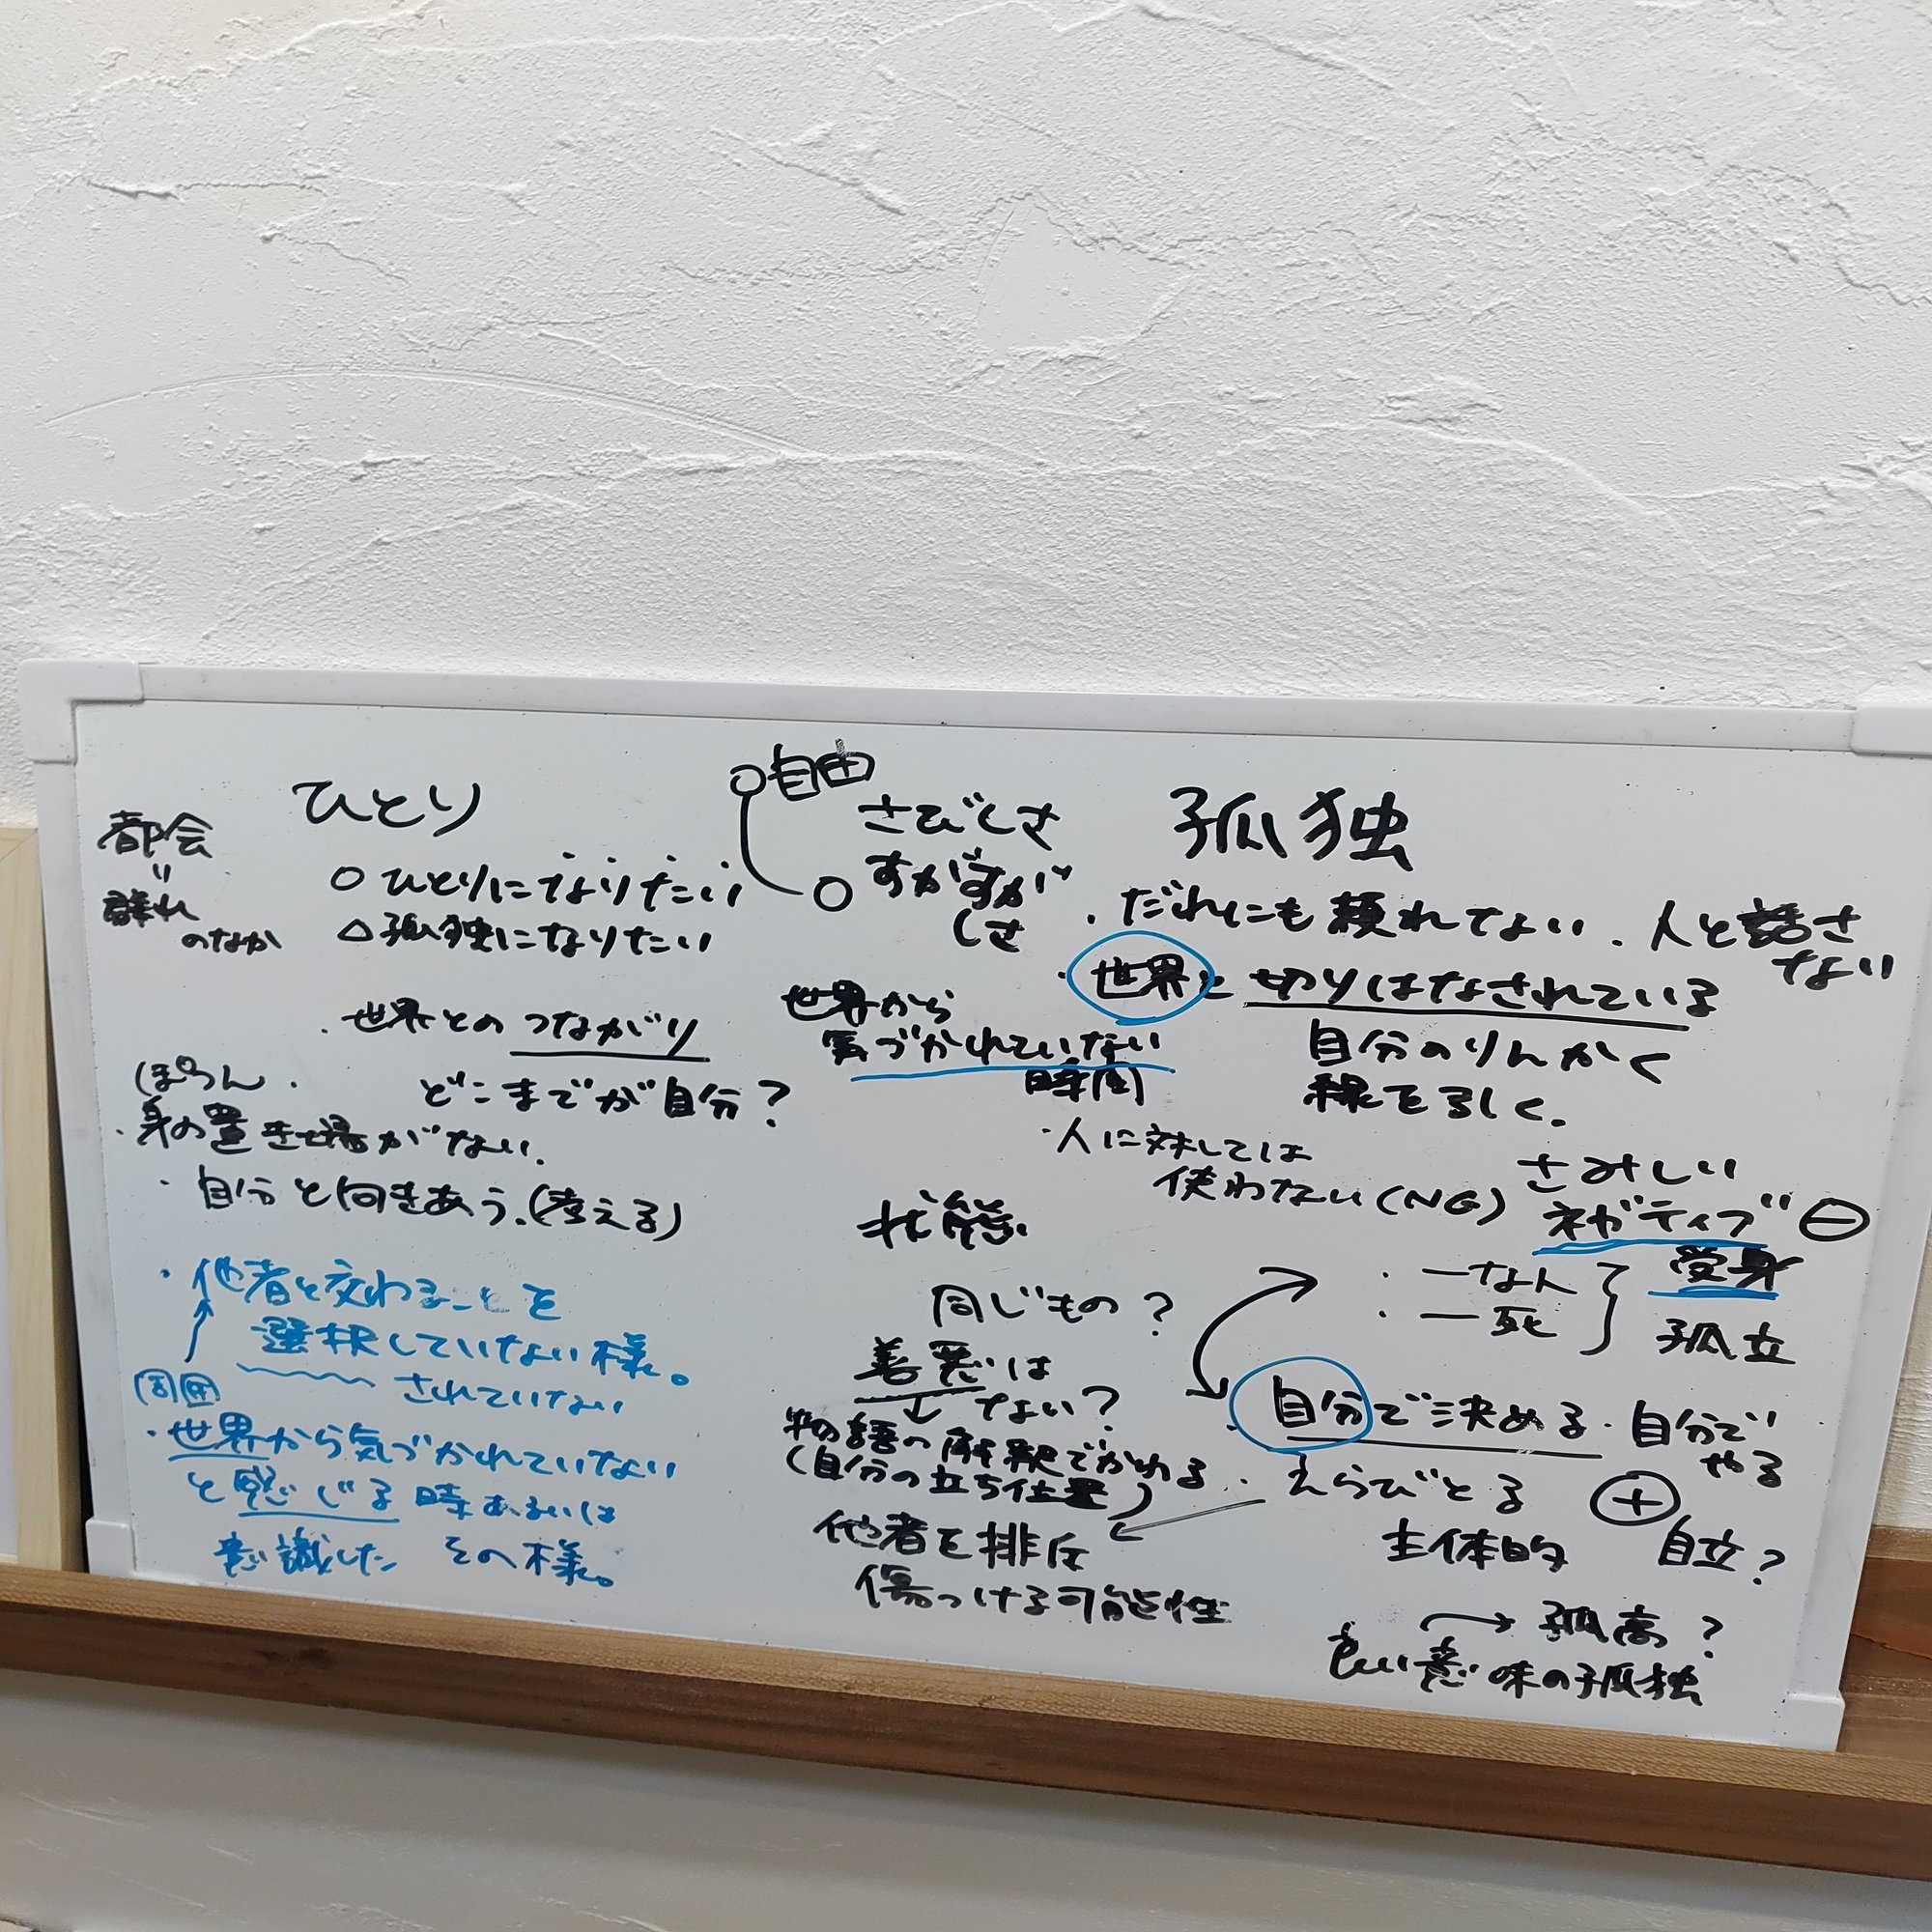 ひとり
都会
〃
群れ
のなか
○ ひとりになりたい
△ 孤独になりたい
○自由
さびしさ
○ すがすが
しさ
・世界とのつながり
どこまでが自分?
(ぽつん.
・身の置き場がない.
・自分と向きあう.(考える)
・他者と交わることを
選択していない様。
されていない
周囲
・世界から気づかれていない
と感じる時あるいは
意識した その様。
孤独
・だれにも頼れない
・人と話さ
ない
・世界と切りはなされている
世界から
気づかれていない
時間
自分のりんかく
線を引く.
・人に対しては
使わない(NG)
さみしい
ネガティブ ⊖
受身
・一な人
・一死
孤立
状態
同じもの?
善悪は
ない?
物語の解釈でかわる
(自分の立ち位置)
他者を排斥
傷つける可能性
・自分で決める
・自分で
やる
・えらびとる
⊕
主体的
自立?
→ 孤高?
良い意味の孤独